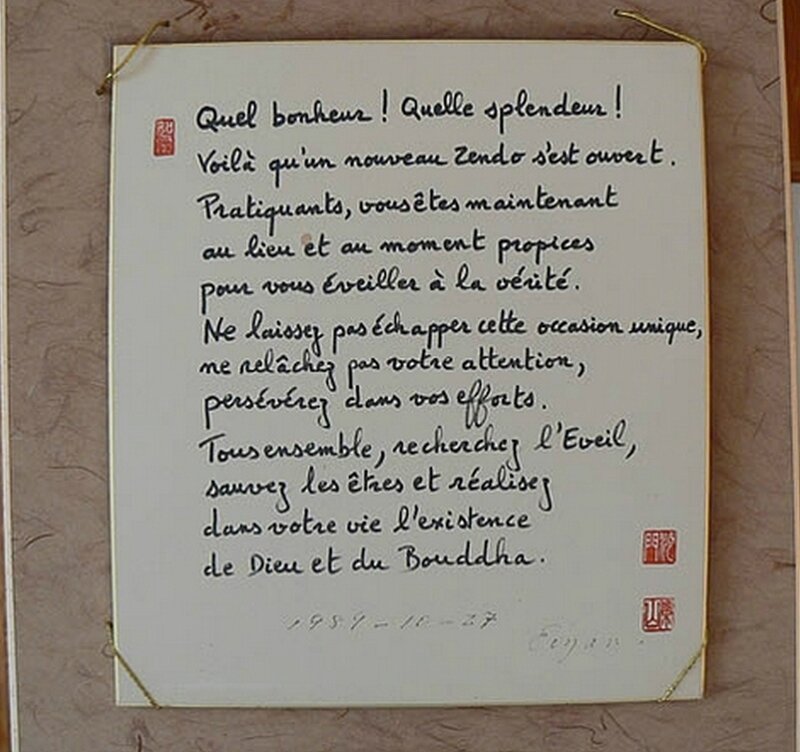 Quel bonheur ! Quelle splendeur !
Voilà qu'un nouveau Zendo s'est ouvert.
Pratiquants, vous êtes maintenant
au lieu et au moment propices
pour vous éveiller à la vérité.
Ne laissez pas échapper cette occasion unique,
ne relâchez pas votre attention,
persévérez dans vos efforts.
Tous ensemble, recherchez l'Eveil,
sauvez les êtres et réalisez
dans votre vie l'existence
de Dieu et du Bouddha.
1989-10-27